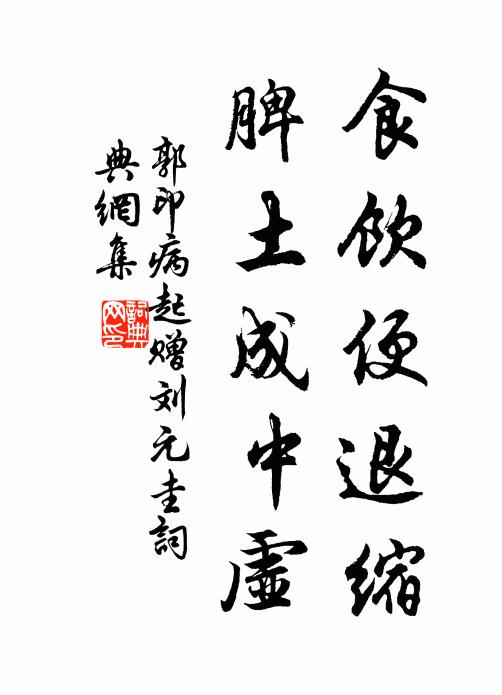 食飲便退縮
脾土成中虛
郭印病起贈刘元圭詞
典網集
詞典网印